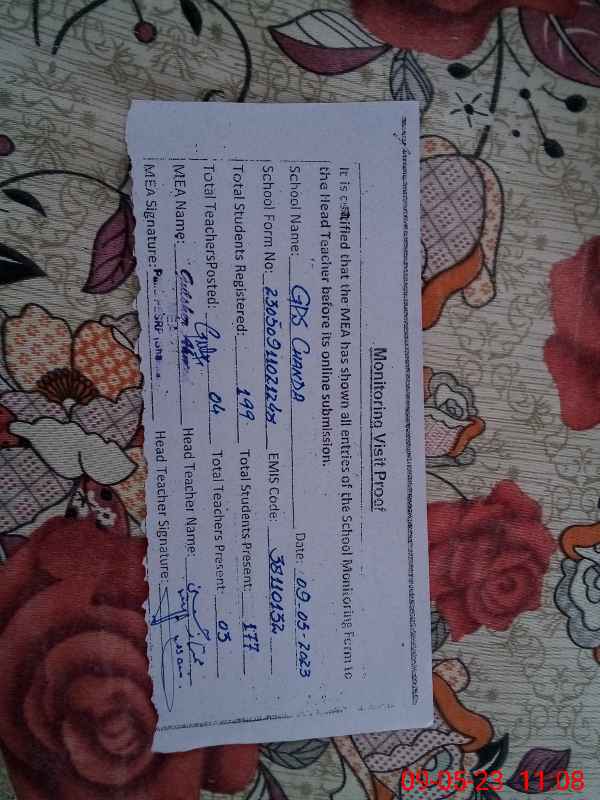 Monitoring Visit Proof
It is certified that the MEA has shown all entries of the School Monitoring Form to
the Head Teacher before its online submission.
School Name: GPS CHANDA Date: 09-05-2023
School Form No: EMIS Code: 38110132
Total Students Registered: 199 Total Students Present: 177
Total TeachersPosted: 04 Total Teachers Present: 03
MEA Name: Head Teacher Name:
MEA Signature: Head Teacher Signature:
09-05-23 11:08